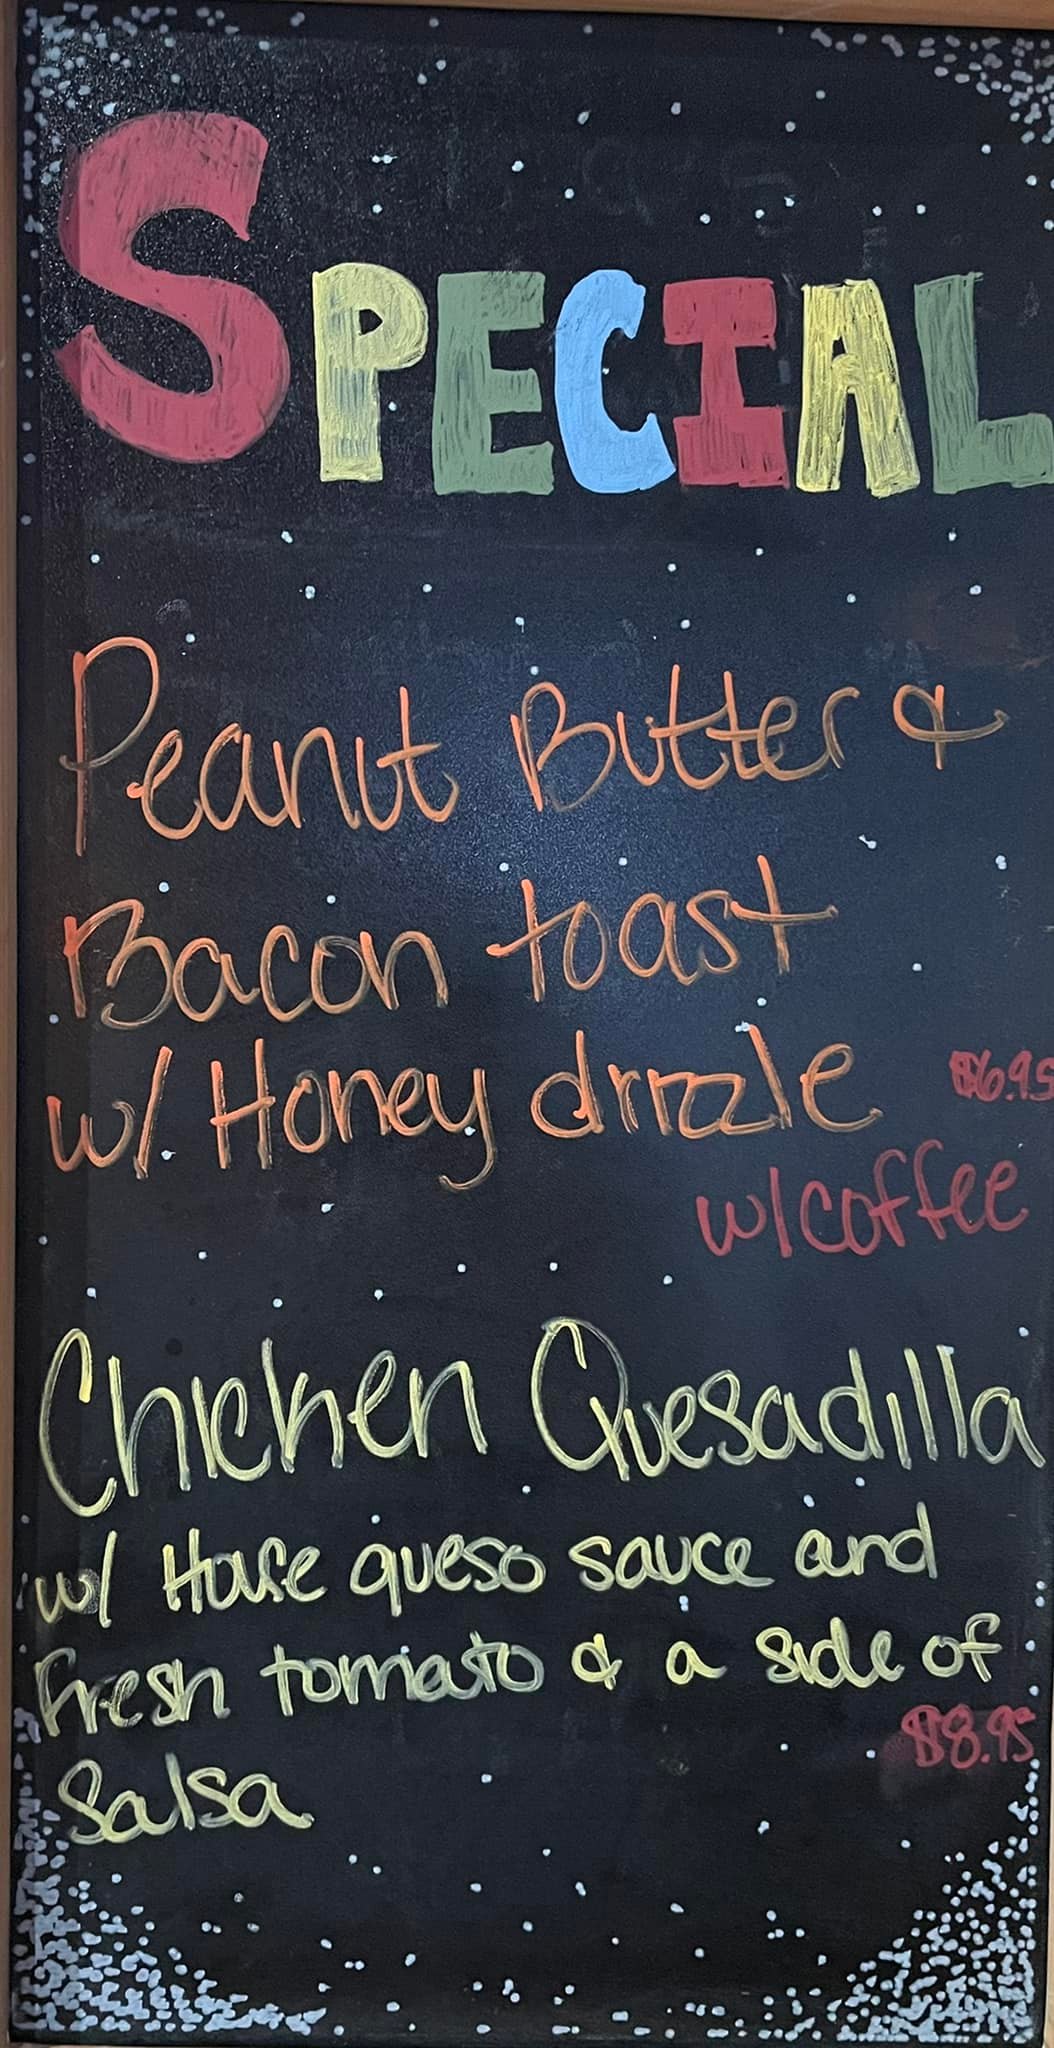 SPECIAL
Peanut Butter &
Bacon toast
w/ Honey drizzle $6.95
w/coffee
Chicken Quesadilla
w/ House queso sauce and
fresh tomato & a side of
$8.95
Salsa